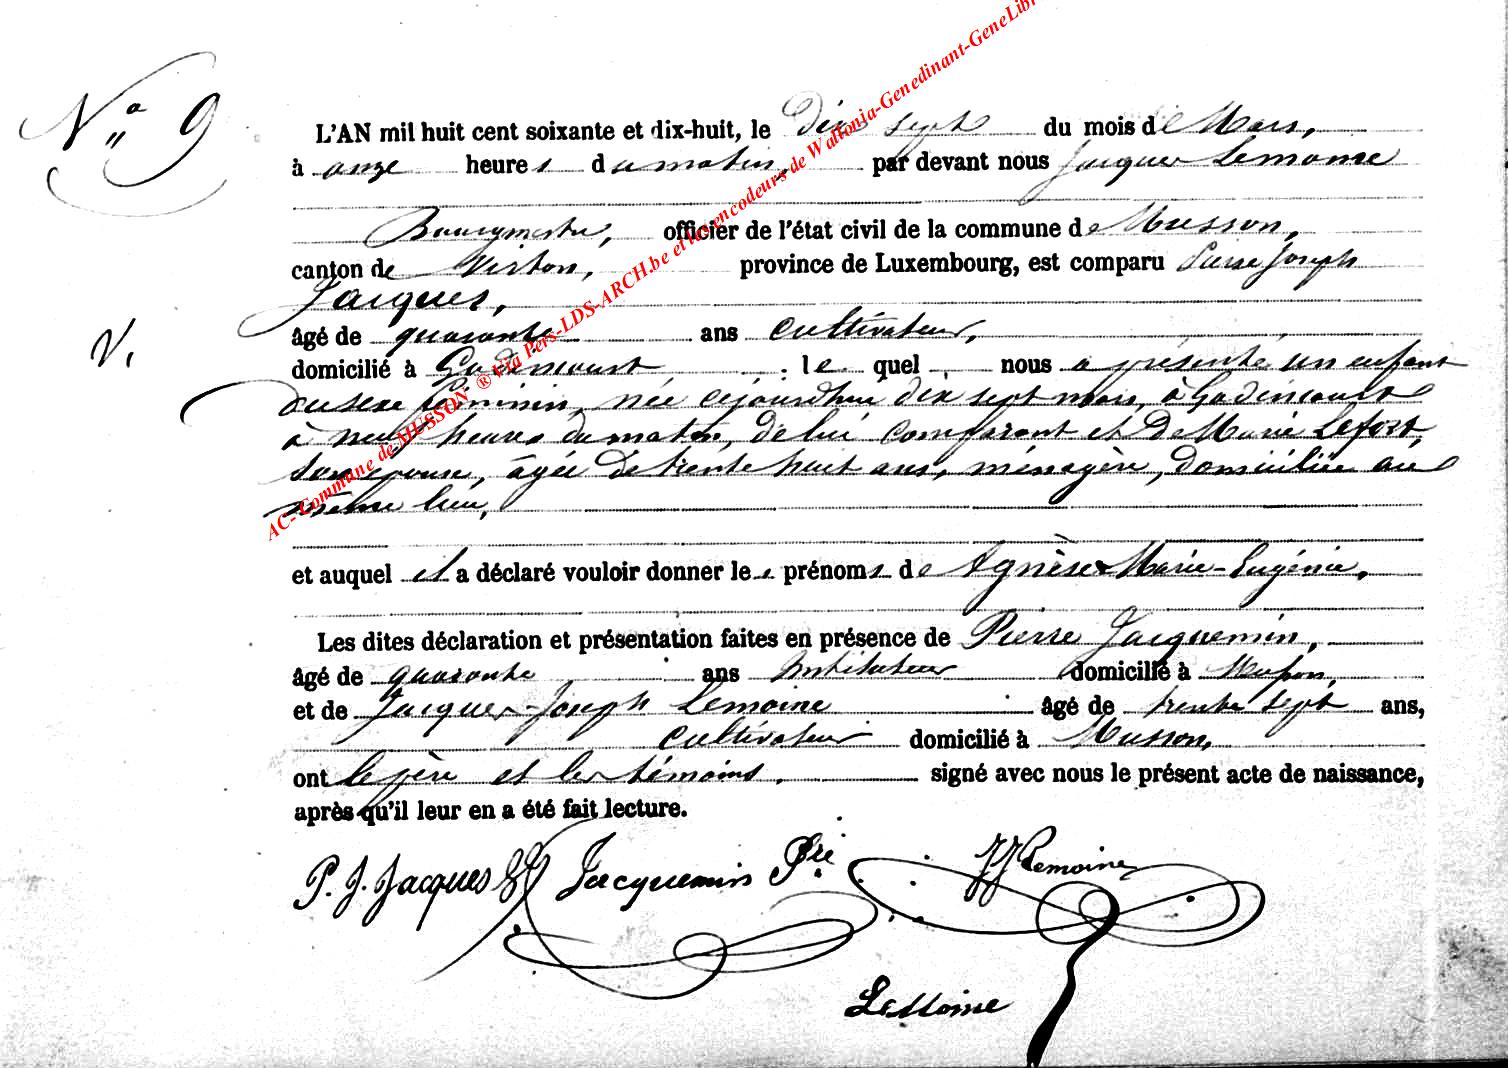 N° 9
L'AN mil huit cent soixante et dix-huit, le Dix sept du mois de Mars,
à onze heures du matin, par devant nous Jacques Lemoine
Bourgmestre, officier de l'état civil de la commune de Musson,
canton de Virton, province de Luxembourg, est comparu Pierre Joseph
Jacques,
âgé de quarante ans cultivateur,
V.
domicilié à Godincourt le quel nous a présenté un enfant
du sexe féminin, née cejourdhui dix sept mars, à Godincourt
à neuf heures du matin, de lui comparant et de Marie Lefort,
son épouse, âgée de trente huit ans, ménagère, domiciliée au
même lieu,
et auquel il a déclaré vouloir donner les prénoms de Agnèse Marie-Eugénie,
Les dites déclaration et présentation faites en présence de Pierre Jacquemin,
âgé de quarante ans instituteur domicilié à Musson,
et de Jacques-Joseph Lemoine âgé de trente sept ans,
cultivateur domicilié à Musson,
ont le père et les témoins, signé avec nous le présent acte de naissance,
après qu'il leur en a été fait lecture.
P. J. Jacques Jacquemin Prre JJ Lemoine
LeMoine
AC- Commune de MUSSON ® Via Pers-LDS-ARCH.be et les encodeurs de Wallonia-Genedinant-GeneLib